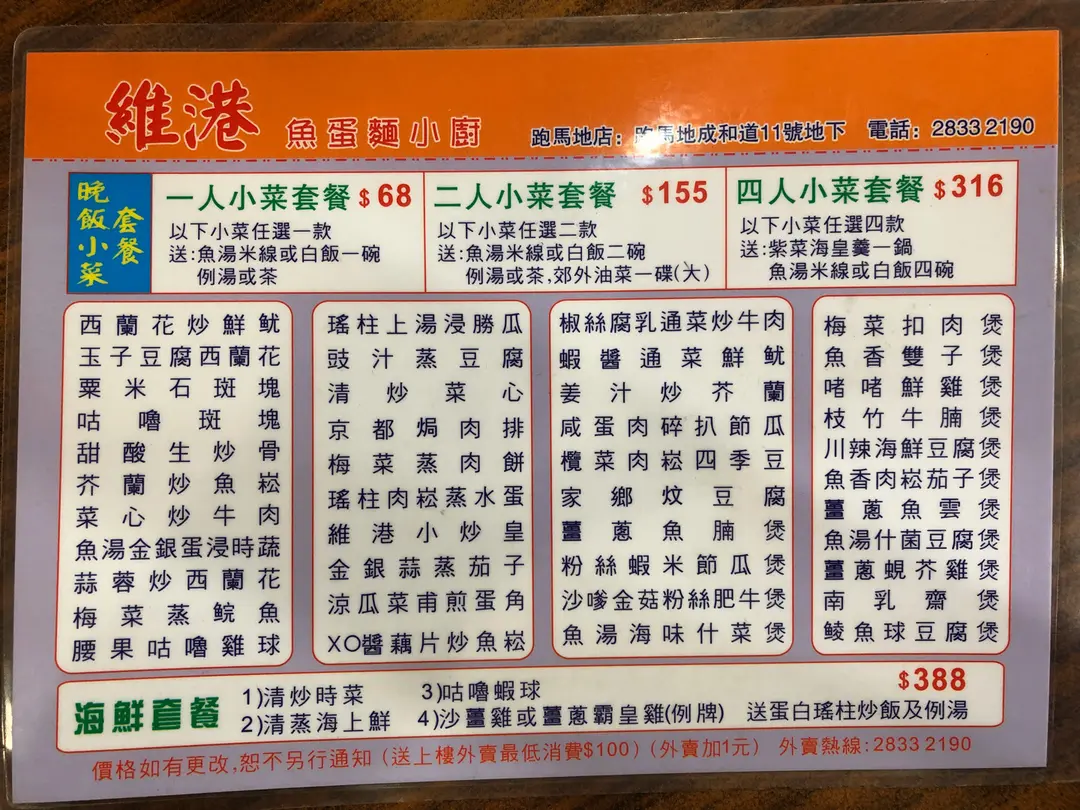 維港 魚蛋麵小廚 跑馬地店：跑馬地成和道11號地下 電話：2833 2190
晚飯小菜套餐
一人小菜套餐 $68
以下小菜任選一款
送:魚湯米線或白飯一碗
例湯或茶
二人小菜套餐 $155
以下小菜任選二款
送:魚湯米線或白飯二碗
例湯或茶,郊外油菜一碟(大)
四人小菜套餐 $316
以下小菜任選四款
送:紫菜海皇羹一鍋
魚湯米線或白飯四碗
西蘭花炒鮮魷
玉子豆腐西蘭花
粟米石斑塊
咕嚕斑塊
甜酸生炒骨
芥蘭炒魚崧
菜心炒牛肉
魚湯金銀蛋浸時蔬
蒜蓉炒西蘭花
梅菜蒸鯇魚
腰果咕嚕雞球
瑤柱上湯浸勝瓜
豉汁蒸豆腐
清炒菜心
京都焗肉排
梅菜蒸肉餅
瑤柱肉崧蒸水蛋
維港小炒皇
金銀蒜蒸茄子
涼瓜菜甫煎蛋角
XO醬藕片炒魚崧
椒絲腐乳通菜炒牛肉
蝦醬通菜鮮魷
姜汁炒芥蘭
咸蛋肉碎扒節瓜
欖菜肉崧四季豆
家鄉炆豆腐
薑蔥魚腩煲
粉絲蝦米節瓜煲
沙嗲金菇粉絲肥牛煲
魚湯海味什菜煲
梅菜扣肉煲
魚香雙子煲
啫啫鮮雞煲
枝竹牛腩煲
川辣海鮮豆腐煲
魚香肉崧茄子煲
薑蔥魚雲煲
魚湯什菌豆腐煲
薑蔥蜆芥雞煲
南乳齋煲
鯪魚球豆腐煲
海鮮套餐
1)清炒時菜
2)清蒸海上鮮
3)咕嚕蝦球
4)沙薑雞或薑蔥霸皇雞(例牌)
$388
送蛋白瑤柱炒飯及例湯
價格如有更改,恕不另行通知 (送上樓外賣最低消費$100) (外賣加1元) 外賣熱線:2833 2190